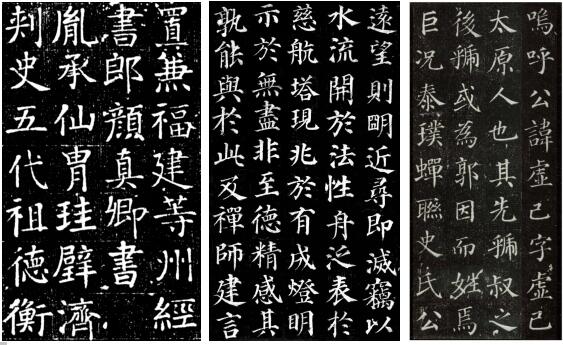 置兼福建等州經
書郎顏真卿書
胤承仙胄珪璧濟
刾史五代祖德衡
遠望則明近尋即滅竊以
水流開於法性舟泛表於
慈航塔現兆於有成燈明
示於無盡非至德精感其
孰能與於此及禪師建言
嗚呼公諱虛己字虛己
太原人也其先虢叔之
後虢或為郭因而姓焉
巨況泰璞蟬聯史氏公